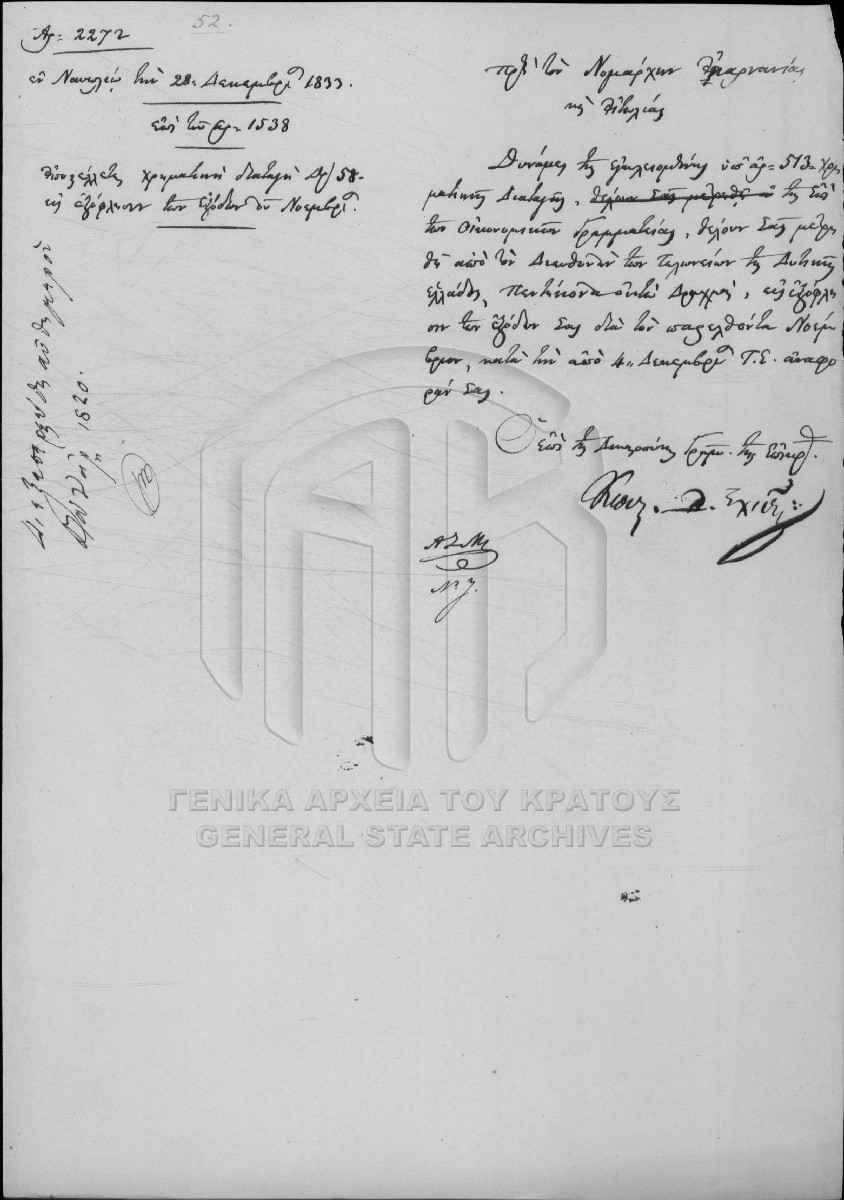 52.
Ἀρ= 2272
ἐν Ναυπλίῳ τὴν 28 Δεκεμβρίου 1833.
ἐπὶ τοῦ ἀρ= 1538
Ἀποστέλλεται χρηματικὴ διαταγὴ Δρ/ 58-
εἰς ἐξόφλησιν τῶν ἐξόδων τοῦ Νοεμβρίου.
Πρὸς τὸν Νομάρχην Ἀκαρνανίας
καὶ Αἰτωλίας
Δυνάμει τῆς ἐγκλειομένης ὑπ' ἀρ= 513= χρη
ματικῆς Διαταγῆς, θέλουν Σᾶς μετρηθῆ τῆς ἐπὶ
τῶν Οἰκονομικῶν Γραμματείας, θέλουν Σᾶς μετρη
θῆ ἀπὸ τὸν Διευθυντὴν τῶν Τελωνείων τῆς Δυτικῆς
Ἑλλάδος, Πεντήκοντα ὀκτὼ Δραχμαί, εἰς ἐξόφλη
σιν τῶν ἐξόδων Σας διὰ τὸν παρελθόντα Νοέμ
βριον, κατὰ τὴν ἀπὸ 4 Δεκεμβρίου Τ.Ε. ἀναφο
ράν Σας.
Ὁ ἐπὶ τῆς Δικαιοσύνης Γραμμ. τῆς Ἐπικρ.
Κωνς. Δ. Σχινᾶς
Ν. 7.
1820.
ΓΕΝΙΚΑ ΑΡΧΕΙΑ ΤΟΥ ΚΡΑΤΟΥΣ
GENERAL STATE ARCHIVES